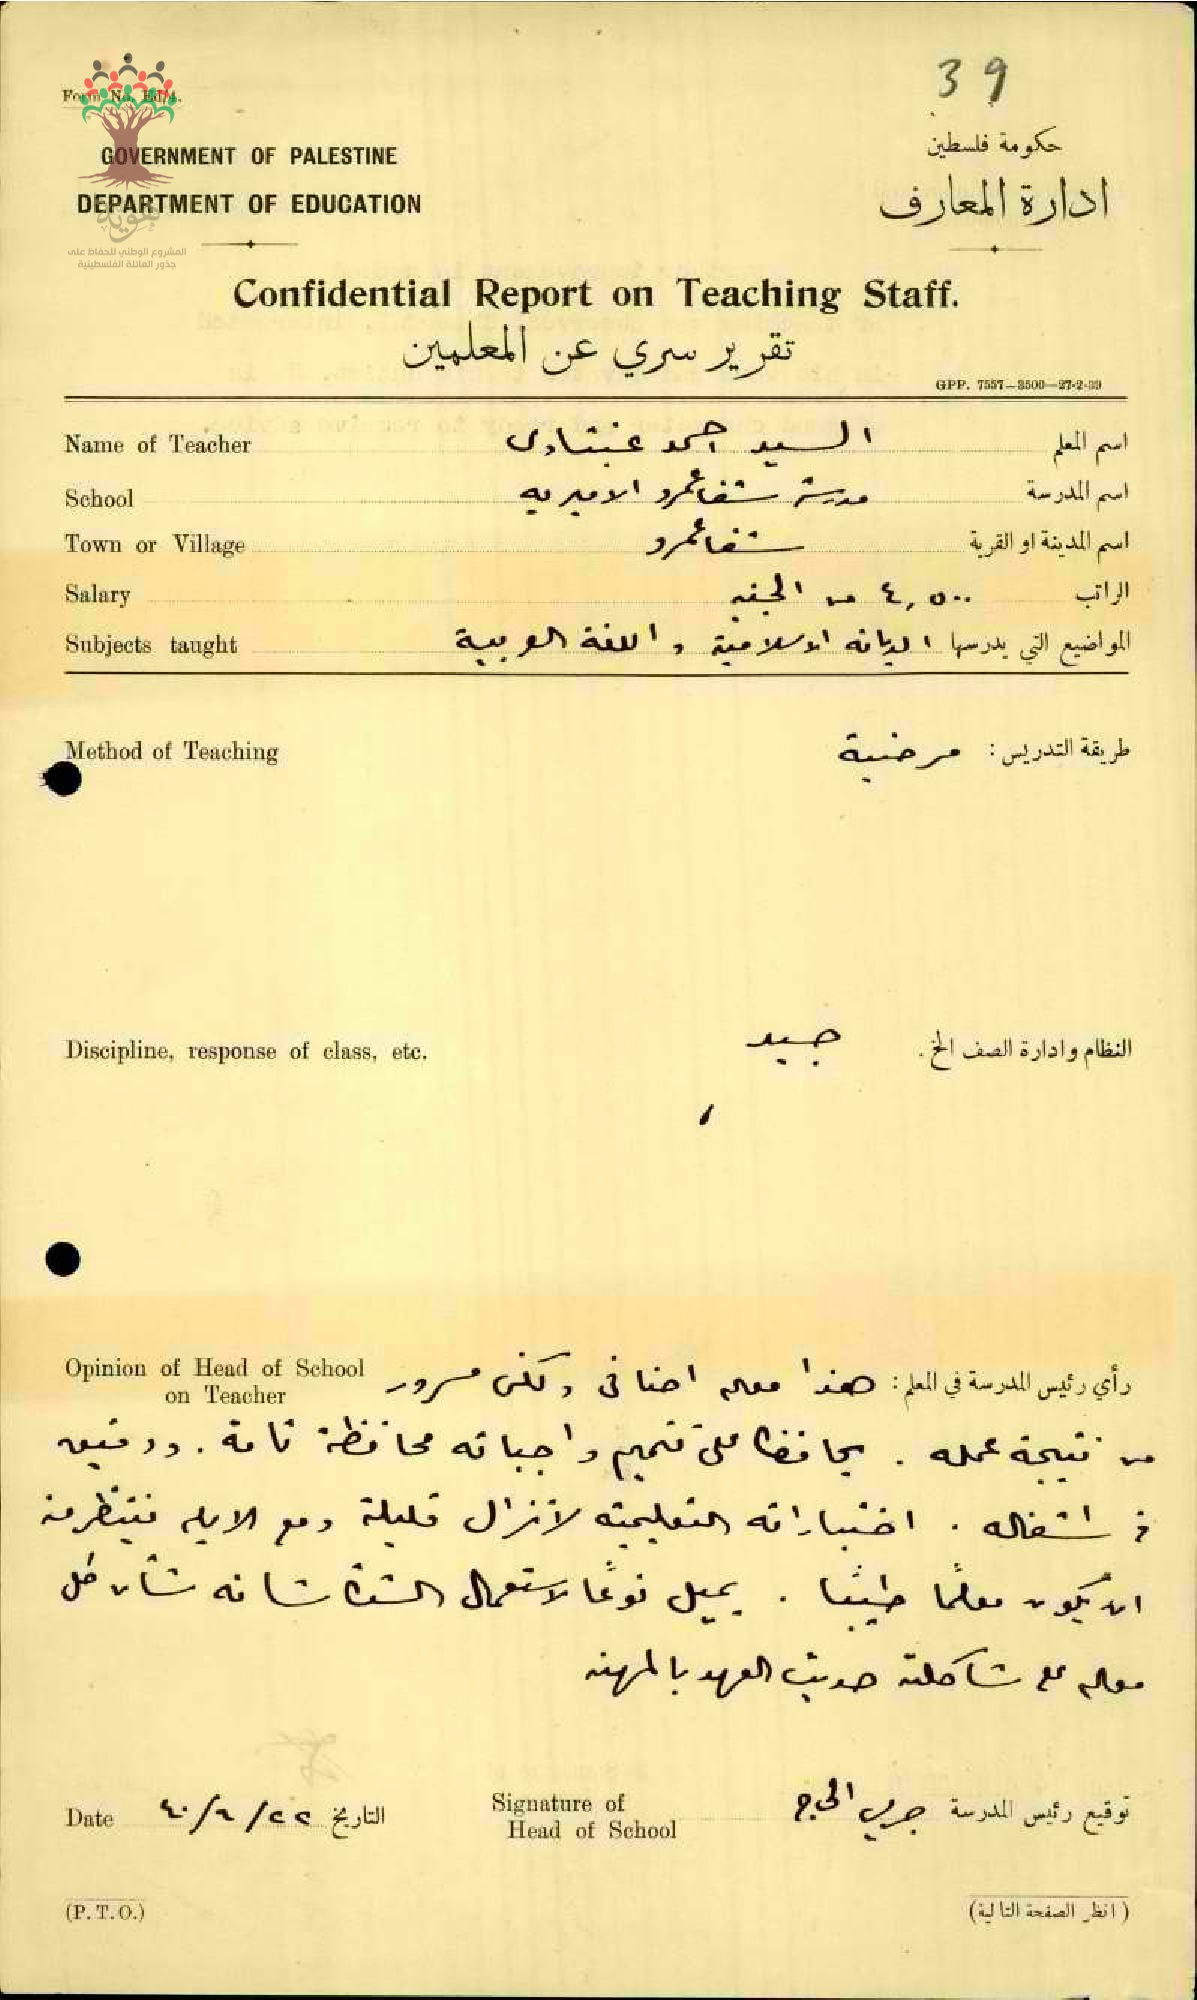 39
Form No. Ed/4.
GOVERNMENT OF PALESTINE
حكومة فلسطين
DEPARTMENT OF EDUCATION
ادارة المعارف
هوية
المشروع الوطني للحفاظ على
جذور العائلة الفلسطينية
Confidential Report on Teaching Staff.
تقرير سري عن المعلمين
GPP. 7557—3500—27-2-39
Name of Teacher السيد احمد عنبتاوي اسم المعلم
School مدرسة شفا عمرو الاميريه اسم المدرسة
Town or Village شفا عمرو اسم المدينة او القرية
Salary ٤,٥٠٠ من الجنيه الراتب
Subjects taught الديانه الاسلامية و اللغة العربية المواضيع التي يدرسها
Method of Teaching مرضية طريقة التدريس :
Discipline, response of class, etc. جيد النظام وادارة الصف الخ .
Opinion of Head of School
on Teacher
رأي رئيس المدرسة في المعلم : هذا معلم اضافي ولكني مسرور
من نتيجة عمله . يحافظ على تتميم واجباته محافظة تامة . ودقيق
في اشغاله . اختباراته التعليمية لا تزال قليلة ومع الايام ننتظر منه
ان يكون معلمًا طيبًا . يميل نوعًا لاستعمال الشدة شانه شأن كل
معلم على شاكلته حديث العهد بالمهنه
Date ٢٢/٦/٤٠ التاريخ
Signature of
Head of School
الحاج توقيع رئيس المدرسة
(P. T. O.)
( انظر الصفحة التالية )